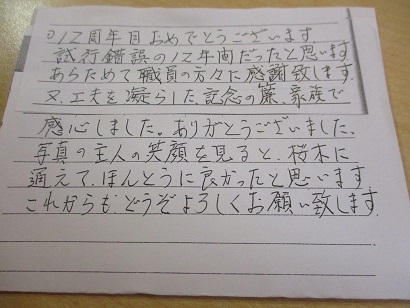 ○12周年目おめでとうございます
試行錯誤の12年間だったと思います
あらためて職員の方々に感謝致します。
又、工夫を凝らした記念の簾、家族で
感心しました。ありがとうございました。
写真の主人の笑顔を見ると、桜木に
通えて、ほんとうに良かったと思います
これからも、どうぞよろしくお願い致します。